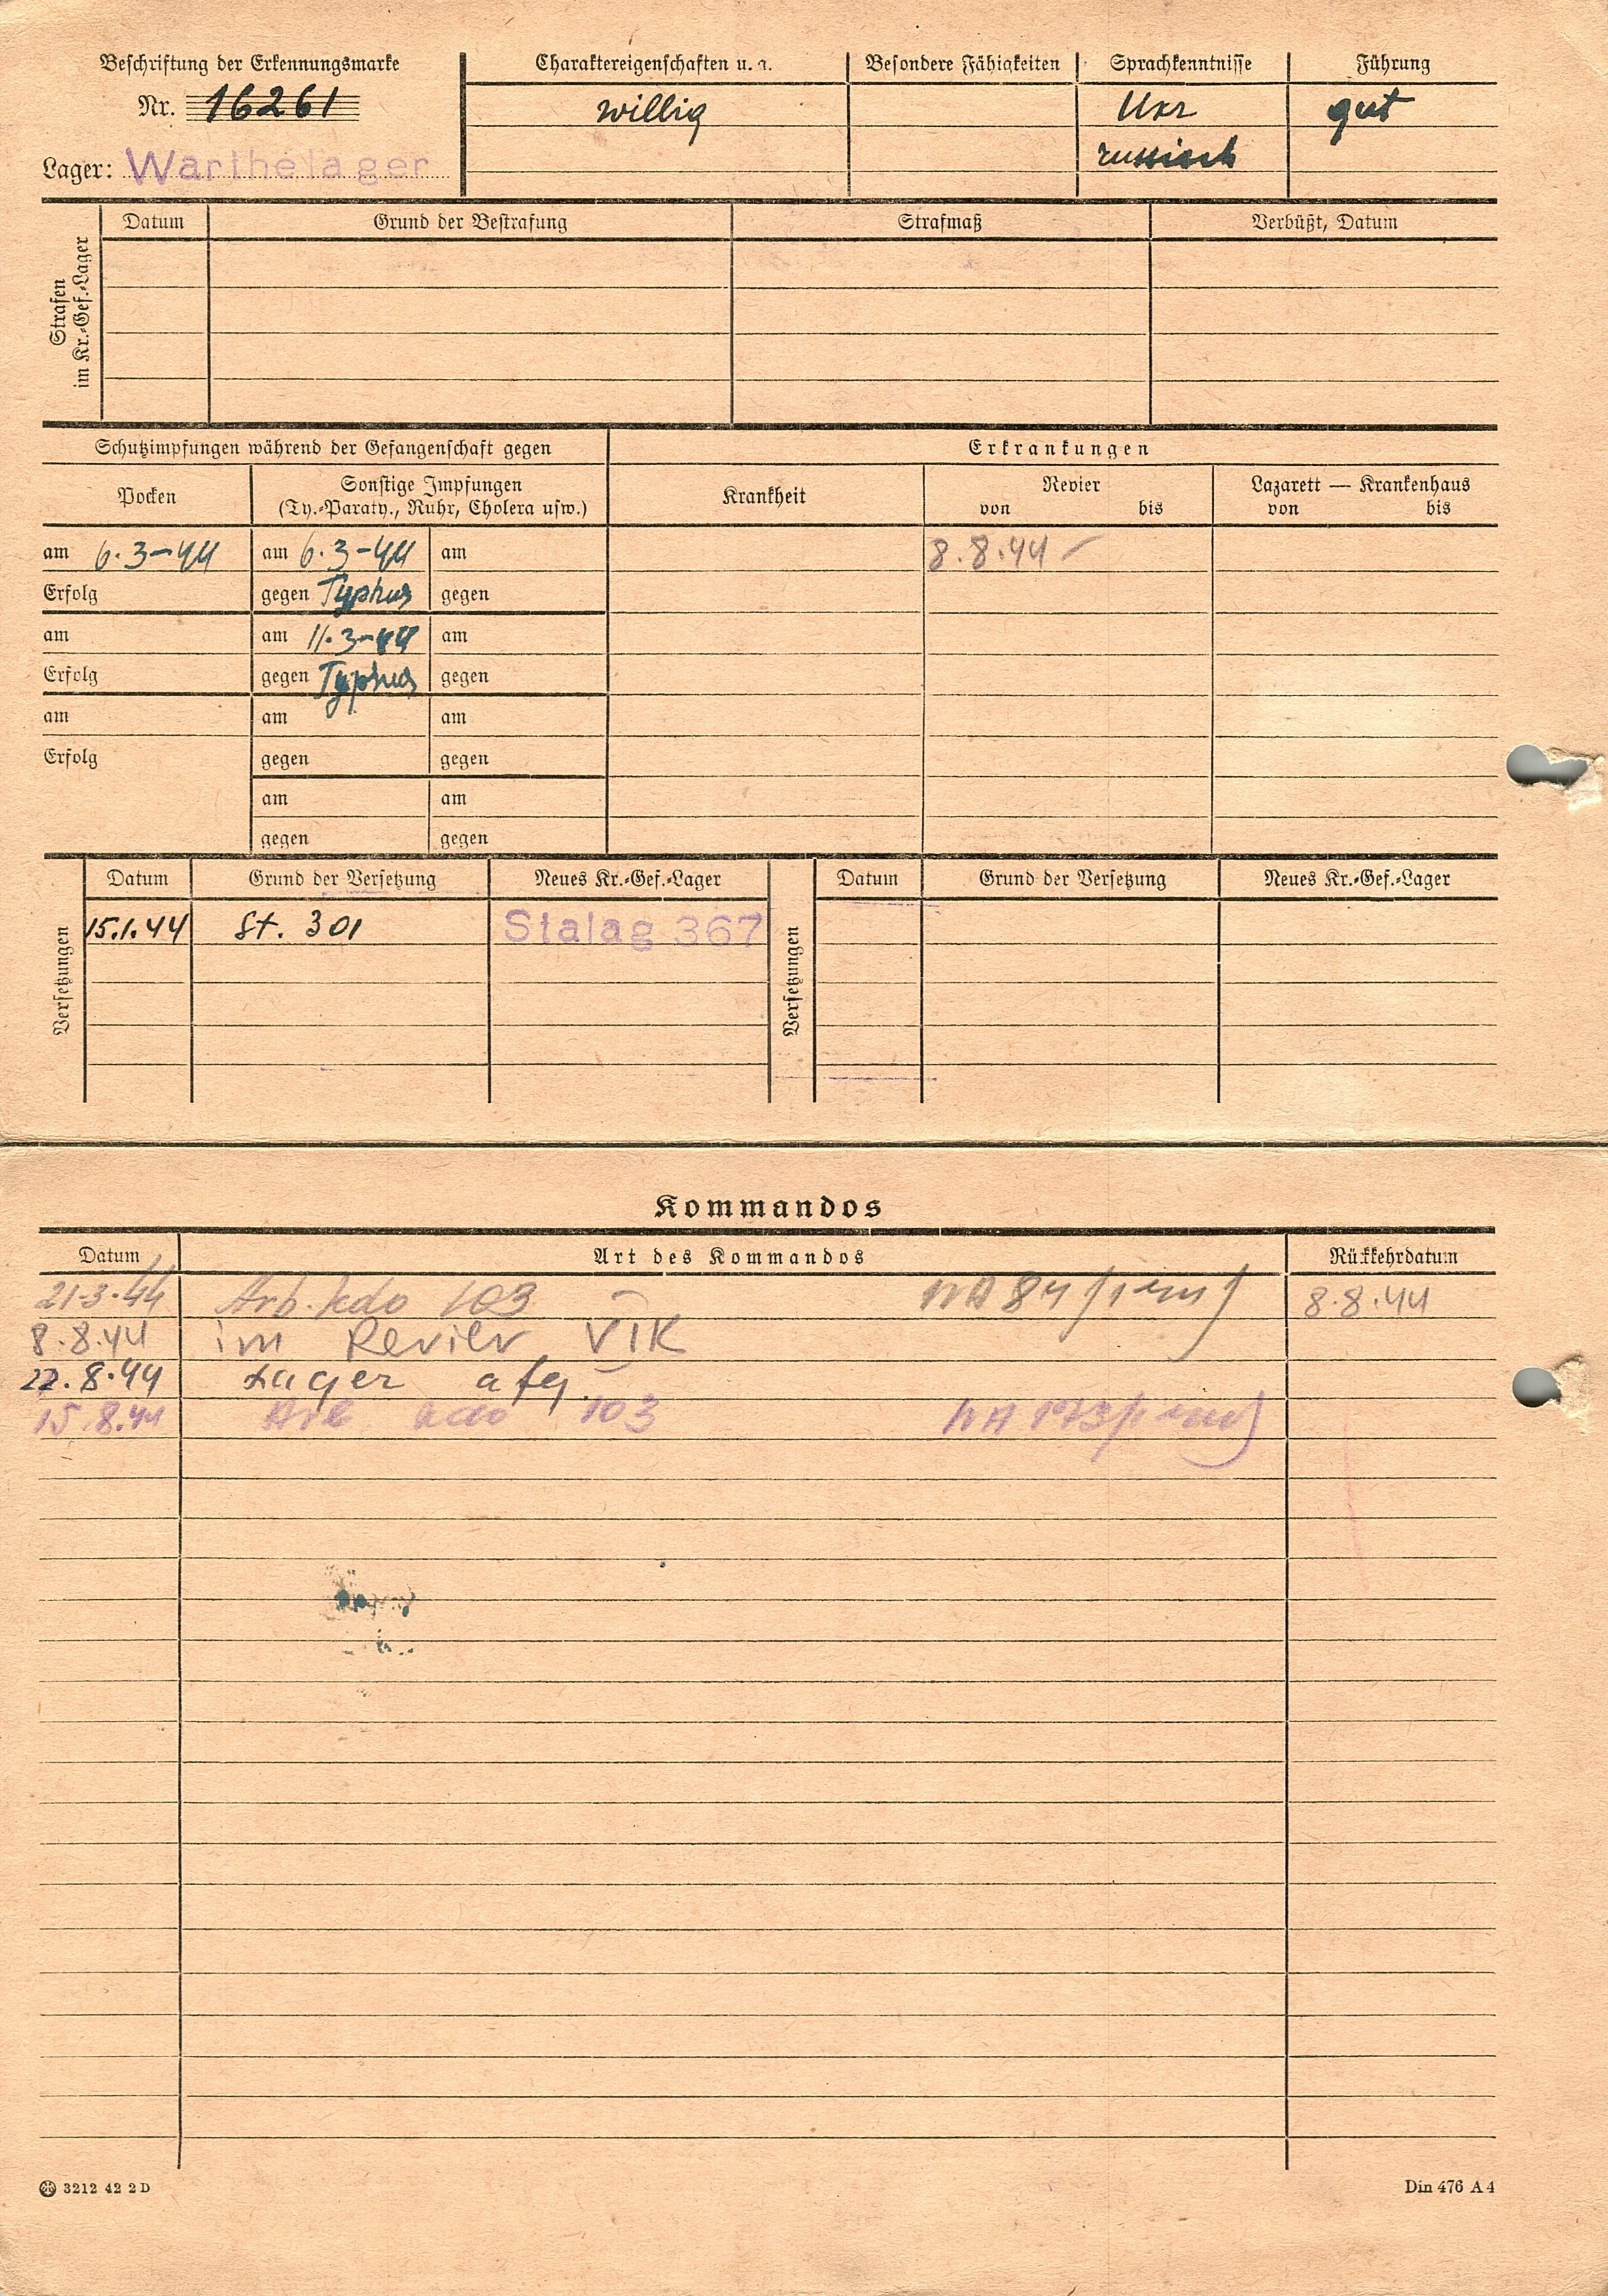 Beschriftung der Erkennungsmarke
Nr. 16261
Lager: Warthelager
Charaktereigenschaften u. a.
willig
Besondere Fähigkeiten
Sprachkenntnisse
Ukr
russisch
Führung
gut
Strafen im Kr.-Gef.-Lager
Datum Grund der Bestrafung Strafmaß Verbüßt, Datum
Schutzimpfungen während der Gefangenschaft gegen Erkrankungen
Pocken
Sonstige Impfungen
(Ty.-Paraty., Ruhr, Cholera usw.)
Krankheit
Revier
von bis
Lazarett — Krankenhaus
von bis
am 6.3-44 am 6.3-44 am 8.8.44 -
Erfolg gegen Typhus gegen
am am 11.3-44 am
Erfolg gegen Typhus gegen
am am am
Erfolg gegen gegen
am am
gegen gegen
Versetzungen
Datum Grund der Versetzung Neues Kr.-Gef.-Lager
15.1.44 St. 301 Stalag 367
Versetzungen
Datum Grund der Versetzung Neues Kr.-Gef.-Lager
Kommandos
Datum Art des Kommandos Rückkehrdatum
21-3-44 Arb. kdo 103 8.8.44
8.8.44 im Revier
22.8.44 Lager
15.8.44 Arb kdo 103
3212 42 2 D
Din 476 A 4